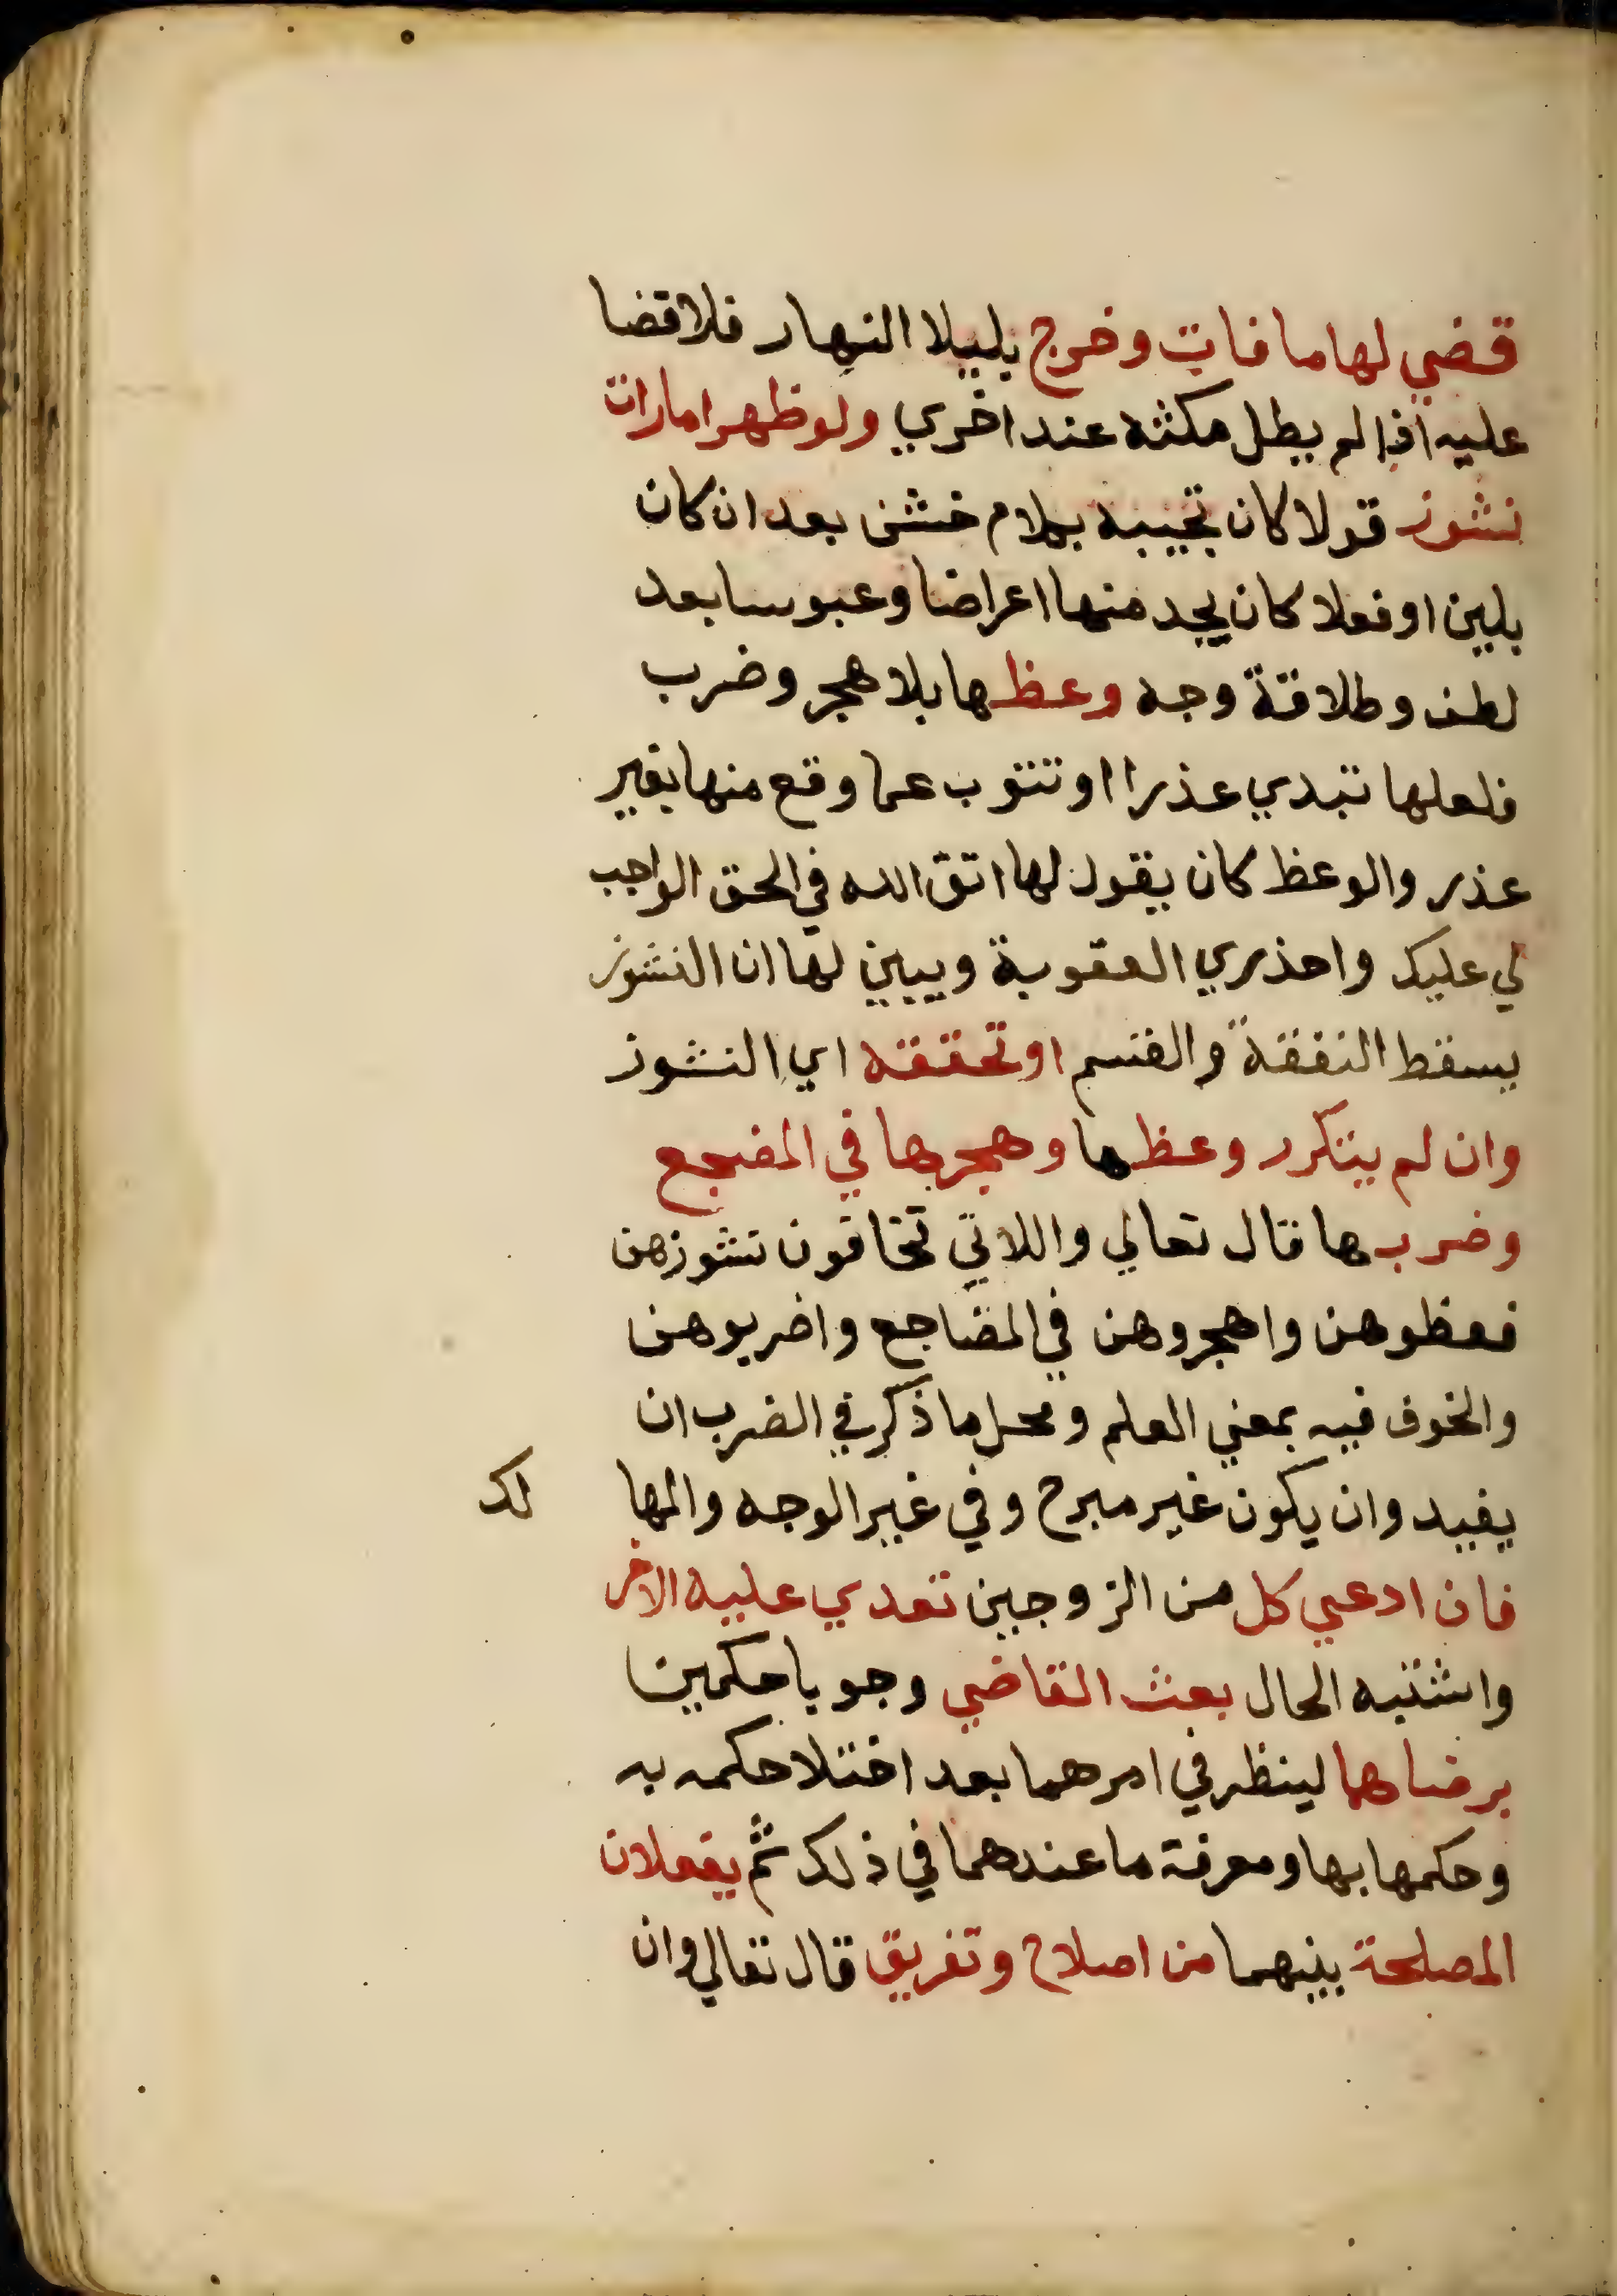 قضي لها ما فات وخرج بليلا النهار فلا قضا
عليه اذا لم يطل مكثه عند اخري ولو ظهر امارات
نشوز قولا كان تجيبه بكلام خشن بعد ان كان
بلين او فعلا كان يجد منها اعراضا وعبوسا بعد
لطف وطلاقة وجه وعظها بلا هجر وضرب
فلعلها تبدي عذرا او تتوب عما وقع منها بغير
عذر والوعظ كان يقول لها اتق الله في الحق الواجب
لي عليك واحذري العقوبة ويبين لها ان النشوز
يسقط النفقة والقسم او تحققه اي النشوز
وان لم يتكرر وعظها وهجرها في المضجع
وضربها قال تعالي واللاتي تخافون نشوزهن
فعظوهن واهجروهن في المضاجع واضربوهن
والخوف فيه بمعني العلم ومحل ما ذكر في الضرب ان
يفيد وان يكون غير مبرح وفي غير الوجه والمها لك
فان ادعي كل من الزوجين تعدي عليه الاخر
واشتبه الحال بعث القاضي وجوبا حكمين
برضاهما لينظر في امرهما بعد اختلا حكمه به
وحكمها بها ومعرفة ما عندهما في ذلك ثم يفعلان
المصلحة بينهما من اصلاح وتفريق قال تعالي وان